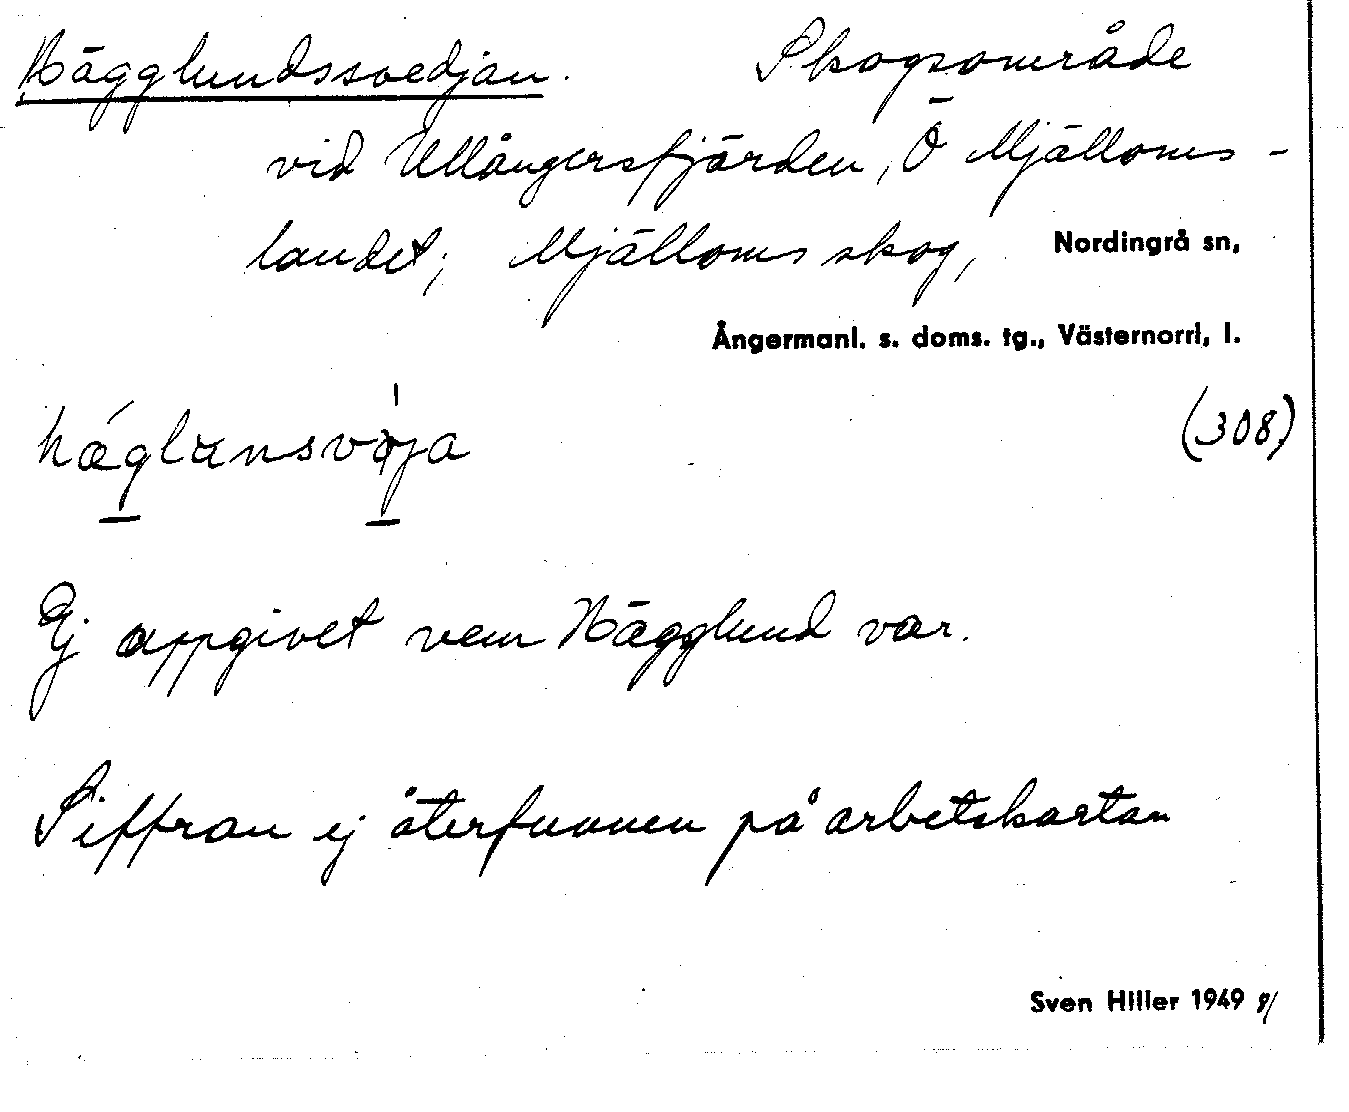 Hägglundssvedjan. Skogsområde
vid Ullångersfjärden, Ö Mjälloms-
landet; Mjälloms skog, Nordingrå sn,
Ångermanl. s. doms. tg., Västernorrl. l.
hæglunsvøja (308)
Ej uppgivet vem Hägglund var.
Siffran ej återfunnen på arbetskartan
Sven Hiller 1949